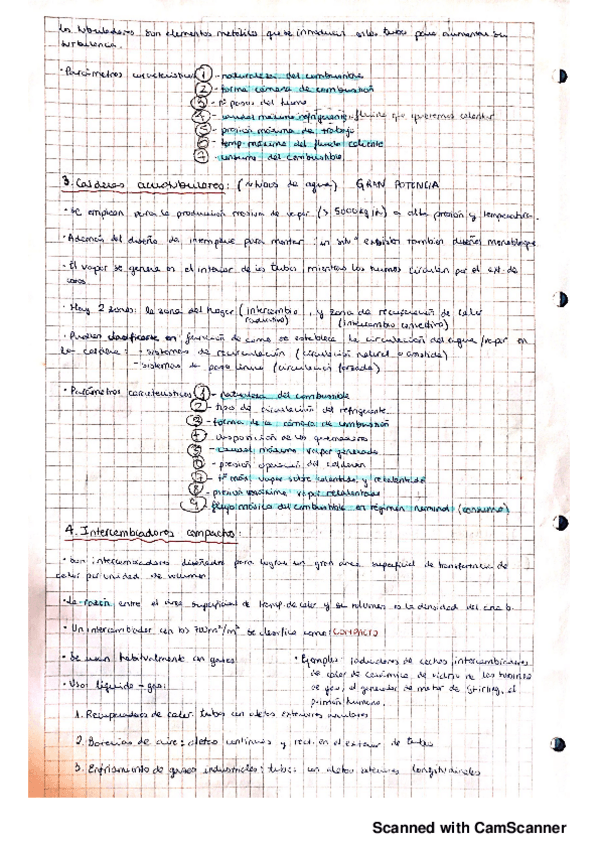 Los turbuladores son elementos metálicos que se introducen en los tubos para aumentar su
turbulencia.
· Parámetros característicos 1 - naturaleza del combustible
2 - forma cámara de combustión
3 - nº pasos del humo
4 - caudal máximo refrigerante, fluido que queremos calentar
5 - presión máxima de trabajo
6 - temp máxima del fluido caliente
7 - consumo del combustible
3. Calderas acuotubulares: (tubos de agua) GRAN POTENCIA
· Se emplean para la producción masiva de vapor (> 5000 kg/h) a alta presión y temperatura.
· Además del diseño de intemperie para montar in situ existen también diseños monobloque
· El vapor se genera en el interior de los tubos, mientras los humos circulan por el ext. de
· Hay 2 zonas: la zona del hogar (intercambio , y zona de recuperación de calor
radiactivo) (intercambio convectivo)
· Pueden clasificarse en función de como se establece la circulación del agua/vapor en
la caldera: - sistemas de recirculación (circulación natural o asistida)
- sistemas de paso único (circulación forzada)
· Parámetros característicos 1 - naturaleza del combustible
2 - tipo de circulación del refrigerante
3 - forma de la cámara de combustión
4 - disposición de los quemadores
5 - caudal máximo vapor generado
6 - presión del calderín
7 - Tª máx. vapor sobrecalentado y recalentado
8 - presión máxima vapor recalentado
9 - flujo másico del combustible en régimen nominal (consumo)
4. Intercambiadores compactos:
· Son intercambiadores diseñados para lograr un gran área superficial de transferencia de
calor por unidad de volumen.
· La razón entre el área superficial de transf. de calor y su volumen es la densidad del área β.
· Un intercambiador con β≥ 700 m²/m³ se clasifica como: COMPACTO
· Se usan habitualmente con gases
· Ejemplos: radiadores de coches, intercambiadores
de calor de cerámica de vidrio de las turbinas
de gas, el generador de motor de Stirling, el
pulmón humano.
· Usos líquido - gas:
1. Recuperadores de calor: tubos con aletas exteriores anulares
2. Baterías de aire: aletas continuas y rect. en el exterior de tubos
3. Enfriamiento de gases industriales: tubos con aletas interiores longitudinales
Scanned with CamScanner